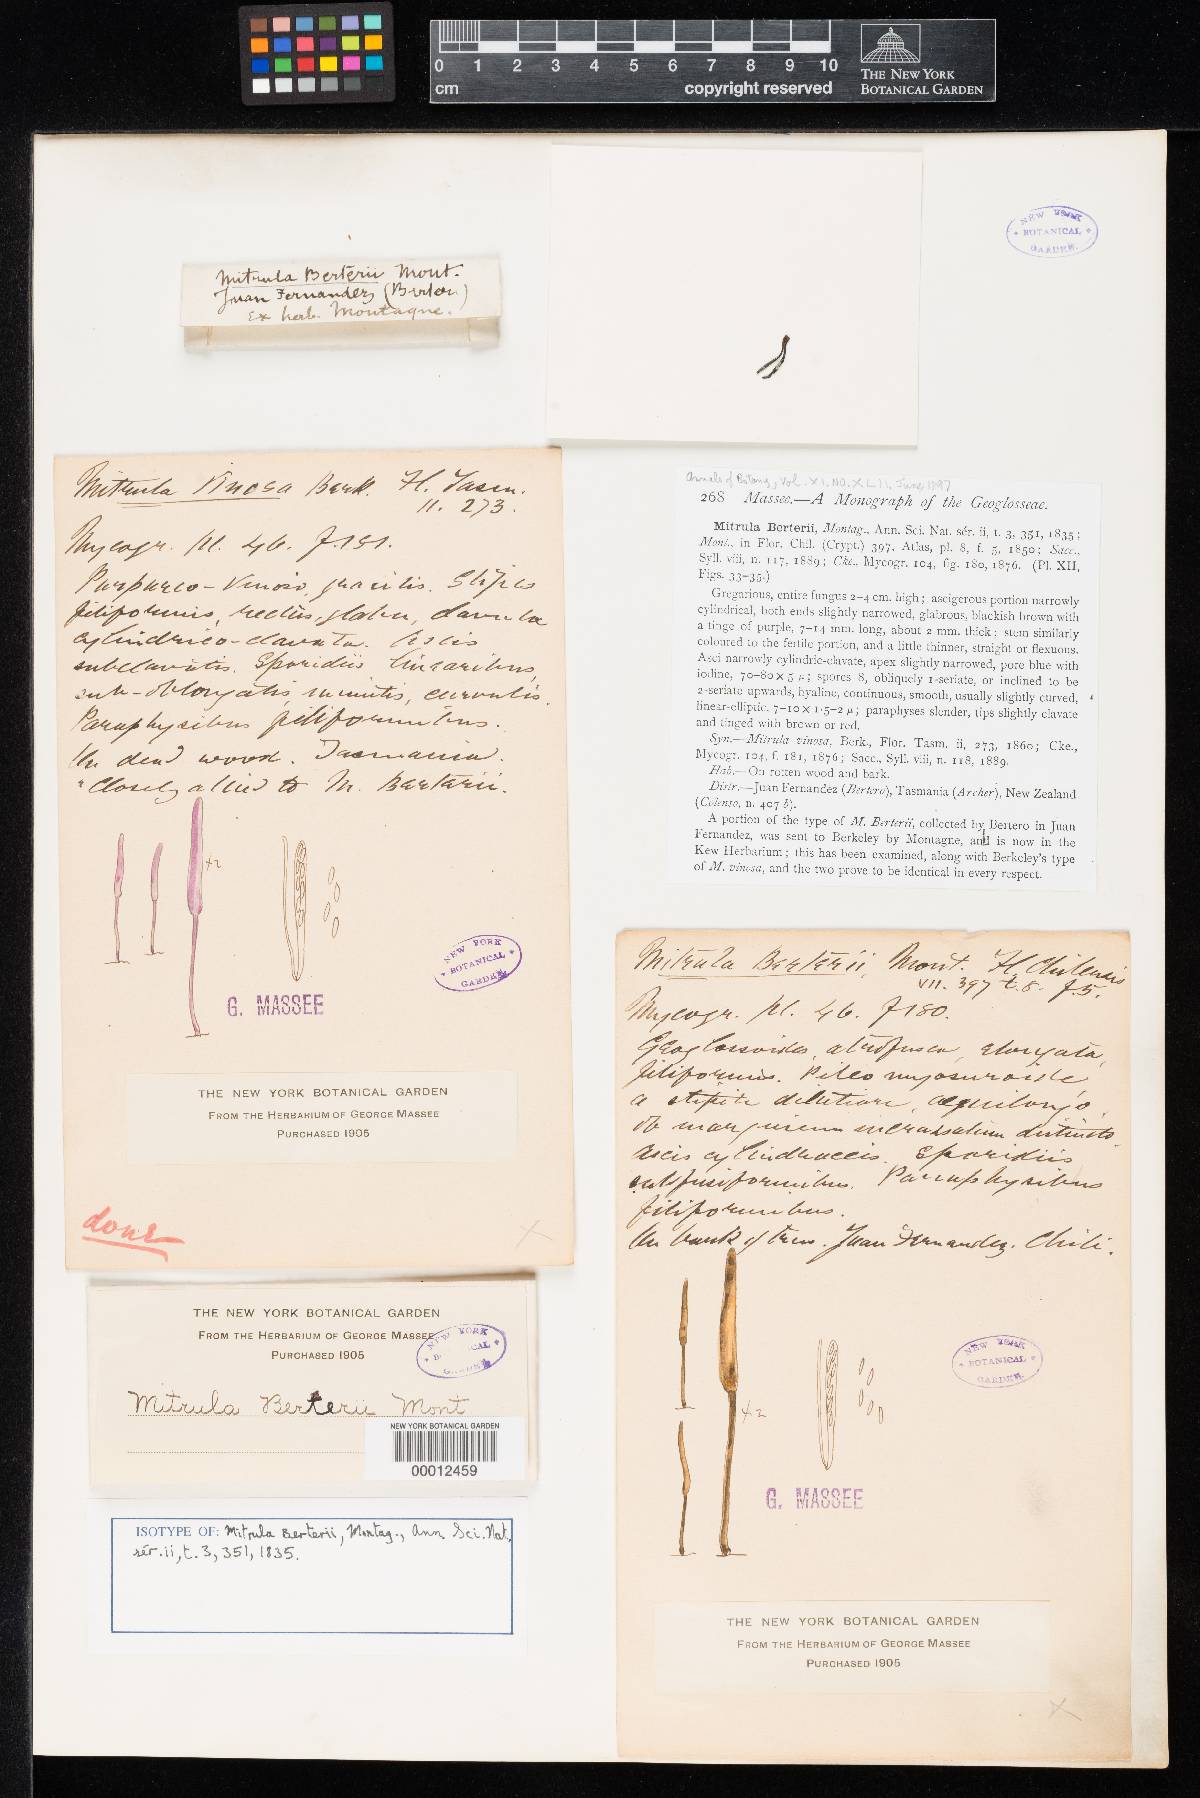 0 1 2 3 4 5 6 7 8 9 10
cm
copyright reserved
THE NEW YORK
BOTANICAL GARDEN
NEW YORK
BOTANICAL
GARDEN
Mitrula Berterii Mont.
Juan Fernandez (Bertero)
Ex herb. Montagne.
Mitrula Vinosa Berk. Fl. Tasm.
II. 273.
Mycogr. Pl. 46. f. 181.
Purpureo-Vinosa, gracilis. Stipes
filiformis, rectus, glaber, clavula
cylindrico-clavata. Ascis
subclavatis. Sporidiis linearibus,
sub-oblongatis, minutis, curvulis.
Paraphysibus filiformibus.
On dead wood. Tasmania.
"Closely allied to M. Berterii.
x2
NEW YORK
BOTANICAL
GARDEN
G. MASSEE
THE NEW YORK BOTANICAL GARDEN
FROM THE HERBARIUM OF GEORGE MASSEE
PURCHASED 1905
done
X
THE NEW YORK BOTANICAL GARDEN
FROM THE HERBARIUM OF GEORGE MASSEE
PURCHASED 1905
NEW YORK
BOTANICAL
GARDEN
Mitrula Berterii Mont
NEW YORK BOTANICAL GARDEN
00012459
ISOTYPE OF: Mitrula Berterii, Montag., Ann Sci. Nat.,
sér. ii, t. 3, 351, 1835.
Annals of Botany, Vol. XI. NO. XLII. June 1897
268 Massee.—A Monograph of the Geoglosseae.
Mitrula Berterii, Montag., Ann. Sci. Nat. sér. ii, t. 3, 351, 1835;
Mont., in Flor. Chil. (Crypt.) 397, Atlas, pl. 8, f. 5, 1850; Sacc.,
Syll. viii, n. 117, 1889; Cke., Mycogr. 104, fig. 180, 1876. (Pl. XII,
Figs. 33-35.)
Gregarious, entire fungus 2-4 cm. high; ascigerous portion narrowly
cylindrical, both ends slightly narrowed, glabrous, blackish brown with
a tinge of purple, 7-14 mm. long, about 2 mm. thick; stem similarly
coloured to the fertile portion, and a little thinner, straight or flexuous.
Asci narrowly cylindric-clavate, apex slightly narrowed, pore blue with
iodine, 70-80 × 5 μ; spores 8, obliquely 1-seriate, or inclined to be
2-seriate upwards, hyaline, continuous, smooth, usually slightly curved,
linear-elliptic, 7-10 × 1·5-2 μ; paraphyses slender, tips slightly clavate
and tinged with brown or red.
Syn.—Mitrula vinosa, Berk., Flor. Tasm. ii, 273, 1860; Cke.,
Mycogr. 104, f. 181, 1876; Sacc., Syll. viii, n. 118, 1889.
Hab.—On rotten wood and bark.
Distr.—Juan Fernandez (Bertero), Tasmania (Archer), New Zealand
(Colenso, n. 407 b).
A portion of the type of M. Berterii, collected by Bertero in Juan
Fernandez, was sent to Berkeley by Montagne, and is now in the
Kew Herbarium; this has been examined, along with Berkeley's type
of M. vinosa, and the two prove to be identical in every respect.
Mitrula Berterii, Mont. Fl. Chilensis
VII. 397 t. 8. f. 5.
Mycogr. Pl. 46. f 180.
Geoglossoides, atrofusca, elongata,
filiformis. Pileo myosuroide
a stipite dilutiore, aequilongo,
ob marginem incrassatum distincto.
Ascis cylindraceis. Sporidiis
subfusiformibus. Paraphysibus
filiformibus.
On bark of trees. Juan Fernandez. Chili.
x2
NEW YORK
BOTANICAL
GARDEN
G. MASSEE
THE NEW YORK BOTANICAL GARDEN
FROM THE HERBARIUM OF GEORGE MASSEE
PURCHASED 1905
X